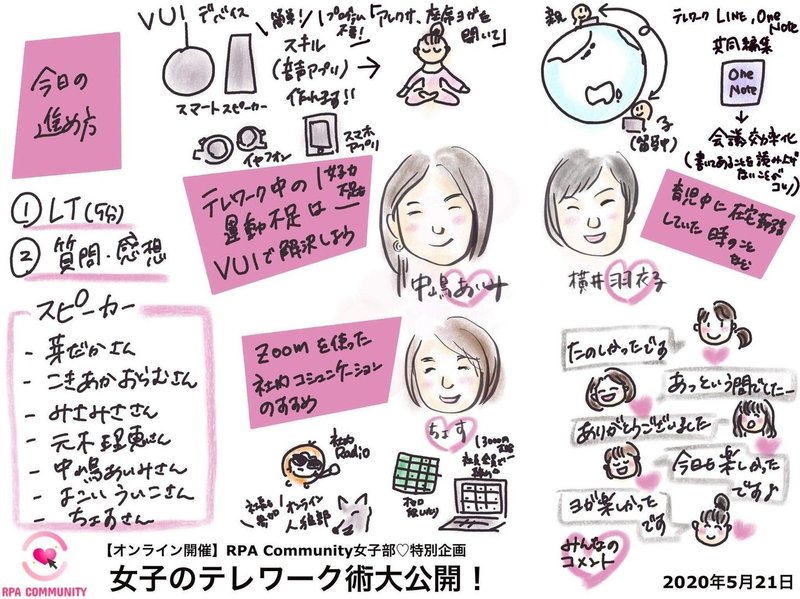 今日の
進め方
① LT(5分)
② 質問・感想
スピーカー
- 芽だかさん
- こきあかおらむさん
- みさみささん
- 元木理恵さん
- 中嶋あいみさん
- よこいういこさん
- ちよすさん
VUIデバイス
スマートスピーカー
イヤフォン
スマホ
アプリ
簡単!
プログラム
不要!
スキル
(音声アプリ)
作れます!!
「アレクサ、座席ヨガを
開いて」
テレワーク中の
運動不足は
VUIで解決しよう
女子力
不足も
中嶋あいみ
親
子
(留学中)
テレワーク LINE, One
Note
共同編集
One
Note
会議効率化
(書いてあることを読み上げ
ないことが
コツ)
横井羽衣子
育児中に在宅勤務
していた時のこと
など
Zoomを使った
社内コミュニケーション
のすすめ
ちよす
社内
Radio
オンライン
人狼部
たのしかったです
あっという間でしたー
ありがとうございました
今日も楽しかった
です♪
ヨガ楽しかった
です
みんなの
コメント
RPA COMMUNITY
【オンライン開催】RPA Community女子部♡特別企画
女子のテレワーク術大公開！
2020年5月21日